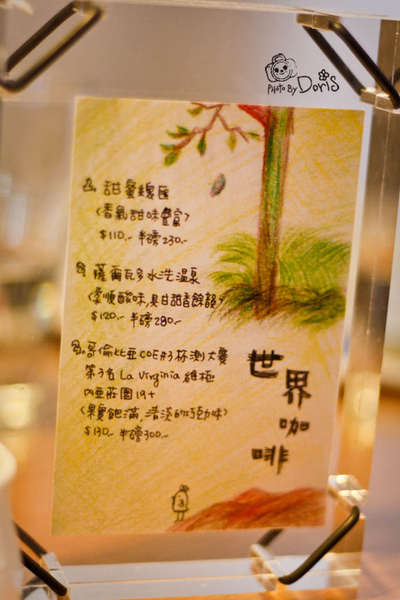 PHOTO BY DoriS
甜蜜總匯
(香氣甜味豐富)
$110.- 半磅230.-
薩爾瓦多水洗溫泉
(柔順酸味,具甘甜香餘韻)
$120.- 半磅280.-
哥倫比亞COE#3杯測大賽
第3名La Virginia維極
尼亞莊園19+
(果實飽滿,清淡的巧克力味)
$130.- 半磅300.-
世界咖啡